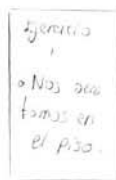 Ejercicio
1
• Nos sen
tamos en
el piso.